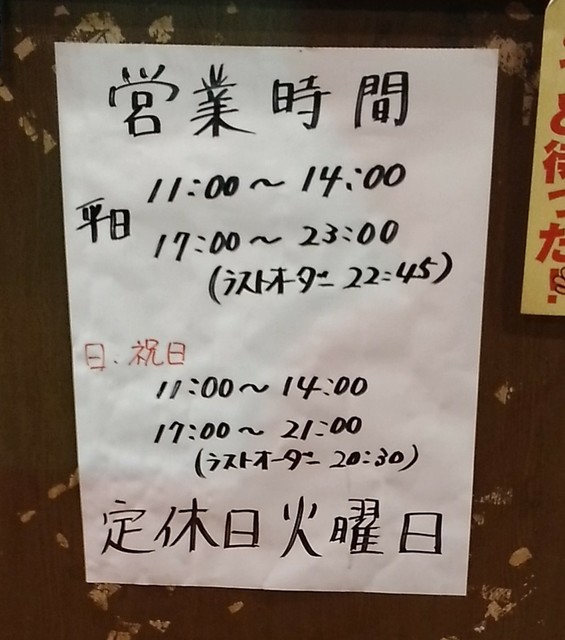 営業時間
平日
11:00～14:00
17:00～23:00
(ラストオーダー 22:45)
日、祝日
11:00～14:00
17:00～21:00
(ラストオーダー 20:30)
定休日火曜日
と待った!